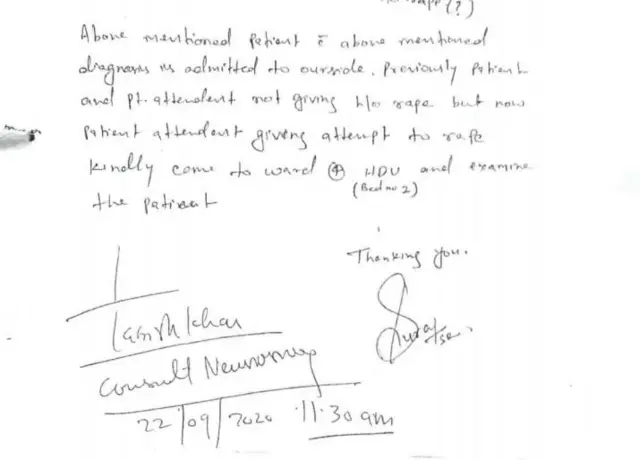 (?)
Above mentioned patient c̄ above mentioned
diagnosis is admitted to ourside. Previously patient
and pt. attendent not giving h/o rape but now
patient attendent giving attempt to rape
kindly come to ward ④ HDU and examine
(Bed no 2)
the patient
Thanking you.
Consult Neurosurg
22/09/2020 11:30 am